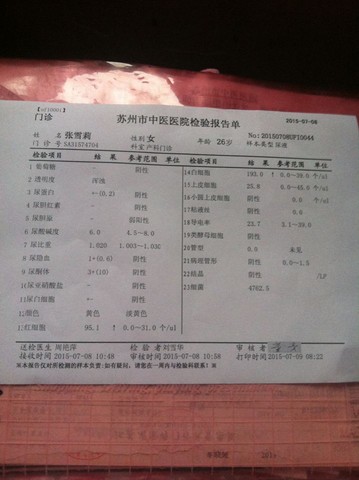 门诊
苏州市中医医院检验报告单
2015-07-08
姓 名 张雪莉 性别 女 年龄 26岁
门 诊 号 科室 产科门诊 样本类型 尿液
检验项目 结 果 参考范围 单位 检验项目 结 果 参考范围 单位
1葡萄糖 - 阴性
2透明度 浑浊
3尿蛋白 +-(0.2) 阴性
4尿胆红素 - 阴性
5尿胆原 - 弱阳性
6尿酸碱度 6.0 4.5-8.0
7尿比重 1.020 1.003-1.030
8尿隐血 1+(0.6) 阴性
9尿酮体 3+(10) 阴性
10尿亚硝酸盐 - 阴性
11尿白细胞 - 阴性
12颜色 黄色 淡黄色
13红细胞 95.1 ↑ 0.0-31.0 个/ul
14白细胞 193.0 ↑ 0.0-39.0 个/ul
15上皮细胞 25.8 0.0-45.6 个/ul
16小圆上皮细胞 0.0
17粘液丝 0.0
18导电率 23.7 5.1-39.0
19类酵母细胞 0.0
20管型 0.0 未见
21病理管形 0.0 0.0-1.5
22结晶 0.0 /LP
23细菌 4762.5
送检医生 周艳萍 检 验 者 刘雪华 审 核 者
接收时间 2015-07-08 10:48 审核时间 2015-07-08 10:58 打印时间 2015-07-09 08:22
※本报告仅对所检测的样本负责;如有疑问,请您在一周内与检验科联系!※